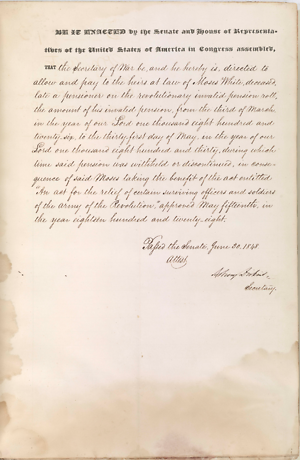 BE IT ENACTED by the Senate and House of Representa-
tives of the United States of America in Congress assembled,
THAT the Secretary of War be, and he hereby is, directed to
allow and pay to the heirs at law of Moses White, deceased,
late a pensioner on the revolutionary invalid pension roll,
the amount of his invalid pension, from the third of March
in the year of our Lord one thousand eight hundred and
twenty six, to the thirty first day of May, in the year of our
Lord one thousand eight hundred and thirty, during which
time said pension was withheld or discontinued, in conse-
quence of said Moses taking the benefit of the act entitled
"An act for the relief of certain surviving officers and soldiers
of the army of the Revolution," approved May fifteenth, in
the year eighteen hundred and twenty-eight.
Passed the Senate, June 20, 1848
Attest,
Asbury Dickins
Secretary